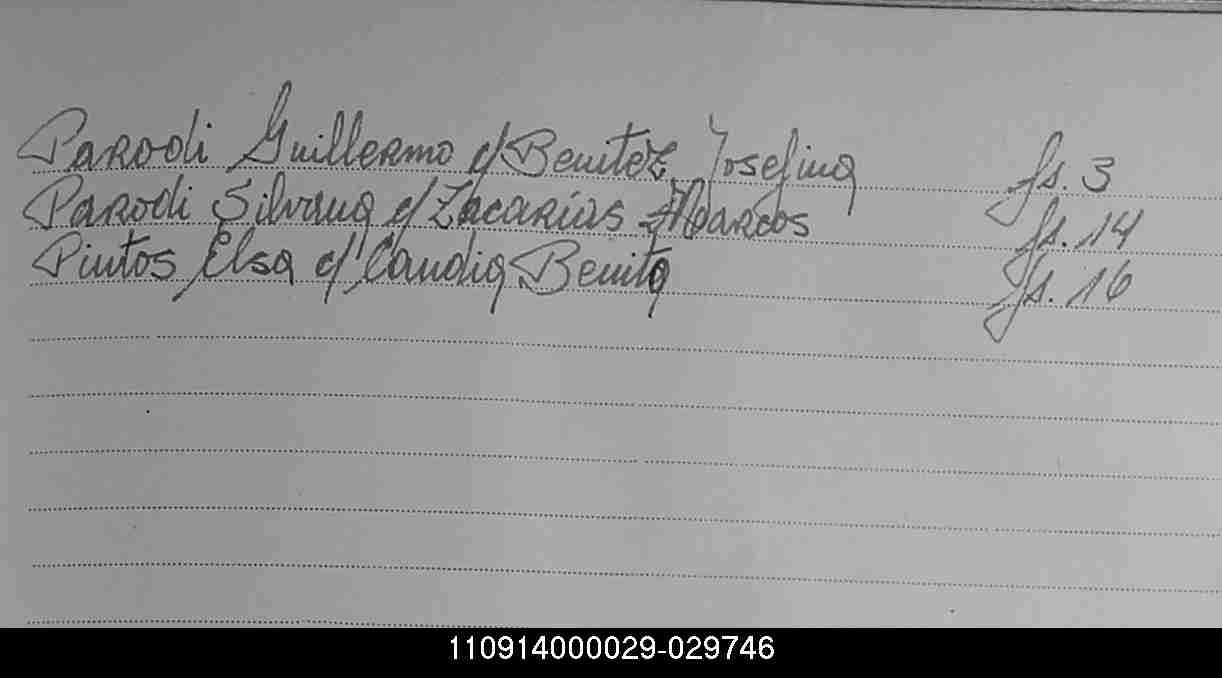 Parodi Guillermo c/ Benitez, Josefina fs. 3
Parodi Silvana c/ Zacarias Marcos fs. 14
Pintos Elsa c/ Candia Benita fs. 16
110914000029-029746